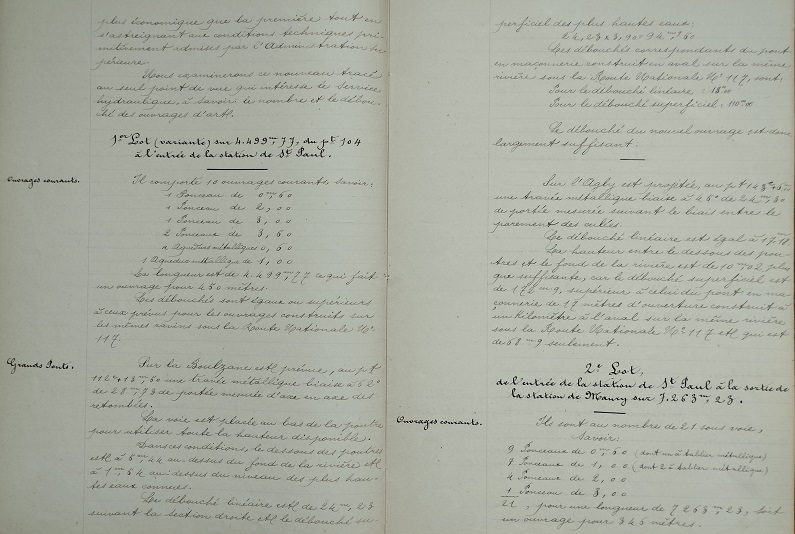 plus économique que la première tout en
s'astreignant aux conditions techniques pri-
mitivement admises par l'Administration su-
périeure.
Nous examinerons ce nouveau tracé
au seul point de vue qui intéresse le Service
hydraulique, à savoir le nombre et le débou-
ché des ouvrages d'art.
1er Lot (variante) sur 4.499m,77, du pt 104
à l'entrée de la station de St Paul.
Ouvrages courants.
Il comporte 10 ouvrages courants, savoir:
1 Ponceau de 0m,60
1 Ponceau de 2,00
1 Ponceau de 3,00
2 Ponceaux de 3,50
4 Aqueducs métalliques 0,60
1 Aqueduc métallique de 1,00
La longueur est de 4.499m,77 ce qui fait
un ouvrage pour 450 mètres.
Les débouchés sont égaux ou supérieurs
à ceux prévus pour les ouvrages construits sur
les mêmes ravins sous la Route Nationale No
117.
Grands Ponts.
Sur la Boulzane est prévue, au pt
112 + 13m,50 une travée métallique biaise à 62°
de 28m,73 de portée mesurée d'axe en axe des
retombées.
La voie est placée au bas de la poutre
pour utiliser toute la hauteur disponible.
Dans ces conditions, le dessous des poutres
est à 5m,44 au-dessus du fond de la rivière et
à 1m,54 au-dessus du niveau des plus hau-
tes eaux connues.
Le débouché linéaire est de 24m,23
suivant la section droite et le débouché su-
perficiel des plus hautes eaux:
24,23 x 3,90 = 94m,50
Les débouchés correspondants du pont
en maçonnerie construit en aval sur la même
rivière sous la Route Nationale No 117, sont,
Pour le débouché linéaire : 15m00
Pour le débouché superficiel : 110m00
Le débouché du nouvel ouvrage est donc
largement suffisant.
Sur l'Agly est projetée, au pt 143 +
une travée métallique biaise à 45° de 24m,30
de portée mesurée suivant le biais entre le
parement des culées.
Le débouché linéaire est égal à 17,18
La hauteur entre le dessous des pou-
tres et le fond de la rivière est de plus
que suffisante, car le débouché superficiel est
de supérieur à celui du pont en ma-
çonnerie de 17 mètres d'ouverture construit à
un kilomètre à l'aval sur la même rivière
sous la Route Nationale No 117 et qui est
de seulement.
2e Lot,
de l'entrée de la station de St Paul à la sortie de
la station de Maury sur 7.263m,23.
Ouvrages courants.
Ils sont au nombre de 21 sous voie,
Savoir:
9 Ponceaux de 0m,60 (dont un à tablier métallique)
7 Ponceaux de 1,00 (dont 2 à tablier métallique)
4 Ponceaux de 2,00
1 Ponceau de 3,00
21, pour une longueur de 7263m,23, soit
un ouvrage pour 345 mètres.